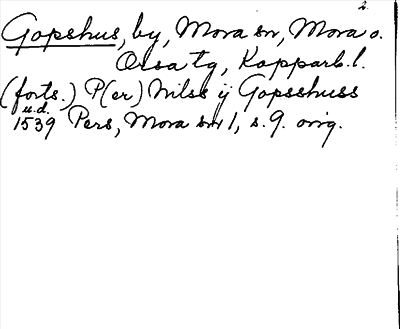 2.
Gopshus, by, Mora sn, Mora o.
Orsa tg, Kopparb. l.
(forts.) P(er) Nilss ij Gopsshuss
u.d.
1539 Pers, Mora snr 1, s. 9. orig.